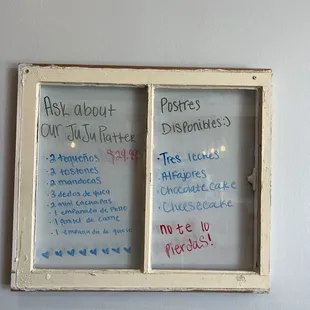 Ask about
our JuJu Platter
• 2 tequeños $24.99
2 tostones
• 2 mandocas
• 3 dedos de
• 2 mini cachapas
• 1 empanada de
1 pastel de carne
• 1 empanada de
Postres
Disponibles:)
• Tres leches
Alfajores
Chocolate cake
Cheesecake
no te lo
pierdas!